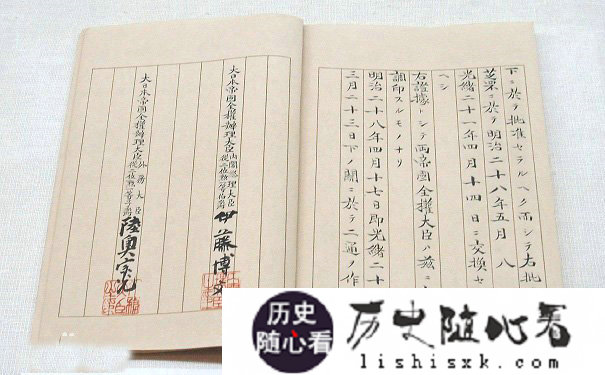 下ニ於テ批准セラルヘク而シテ右批
芝罘ニ於テ明治二十八年五月八
光緒二十一年四月十四日ニ交換セ
ヘシ
右證據トシテ兩帝國全權大臣ハ茲ニ
調印スルモノナリ
明治二十八年四月十七日即光緒二十
三月二十三日下ノ關ニ於テ二通ヲ作
大日本帝國全權辦理大臣
内閣總理大臣
從二位勳一等伯爵
伊藤博文
大日本帝國全權辦理大臣
外務大臣
從二位勳一等子爵
陸奥宗光
历史
随心看
历史随心看
lishisxk.com